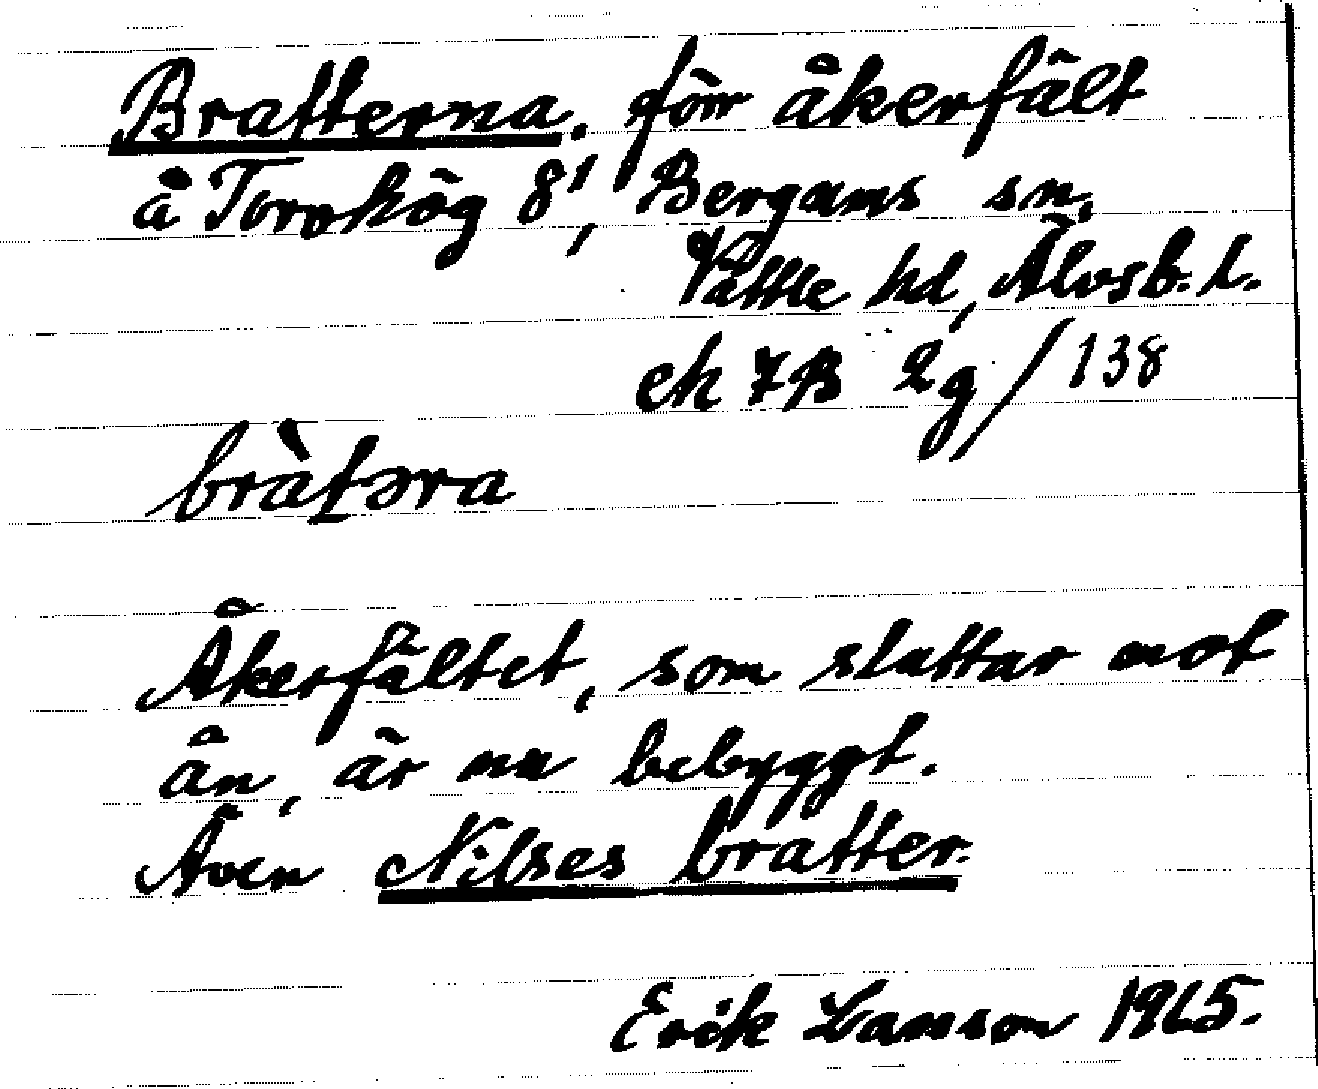 Bratterna, förr åkerfält
å Torvhög 8¹, Bergums sn,
Vättle hd, Älvsb. l.
ek 7B 2g/138
bràtəra
Åkerfältet, som sluttar mot
ån, är nu bebyggt.
Även Nilses bratter.
Erik Larsson 1965.